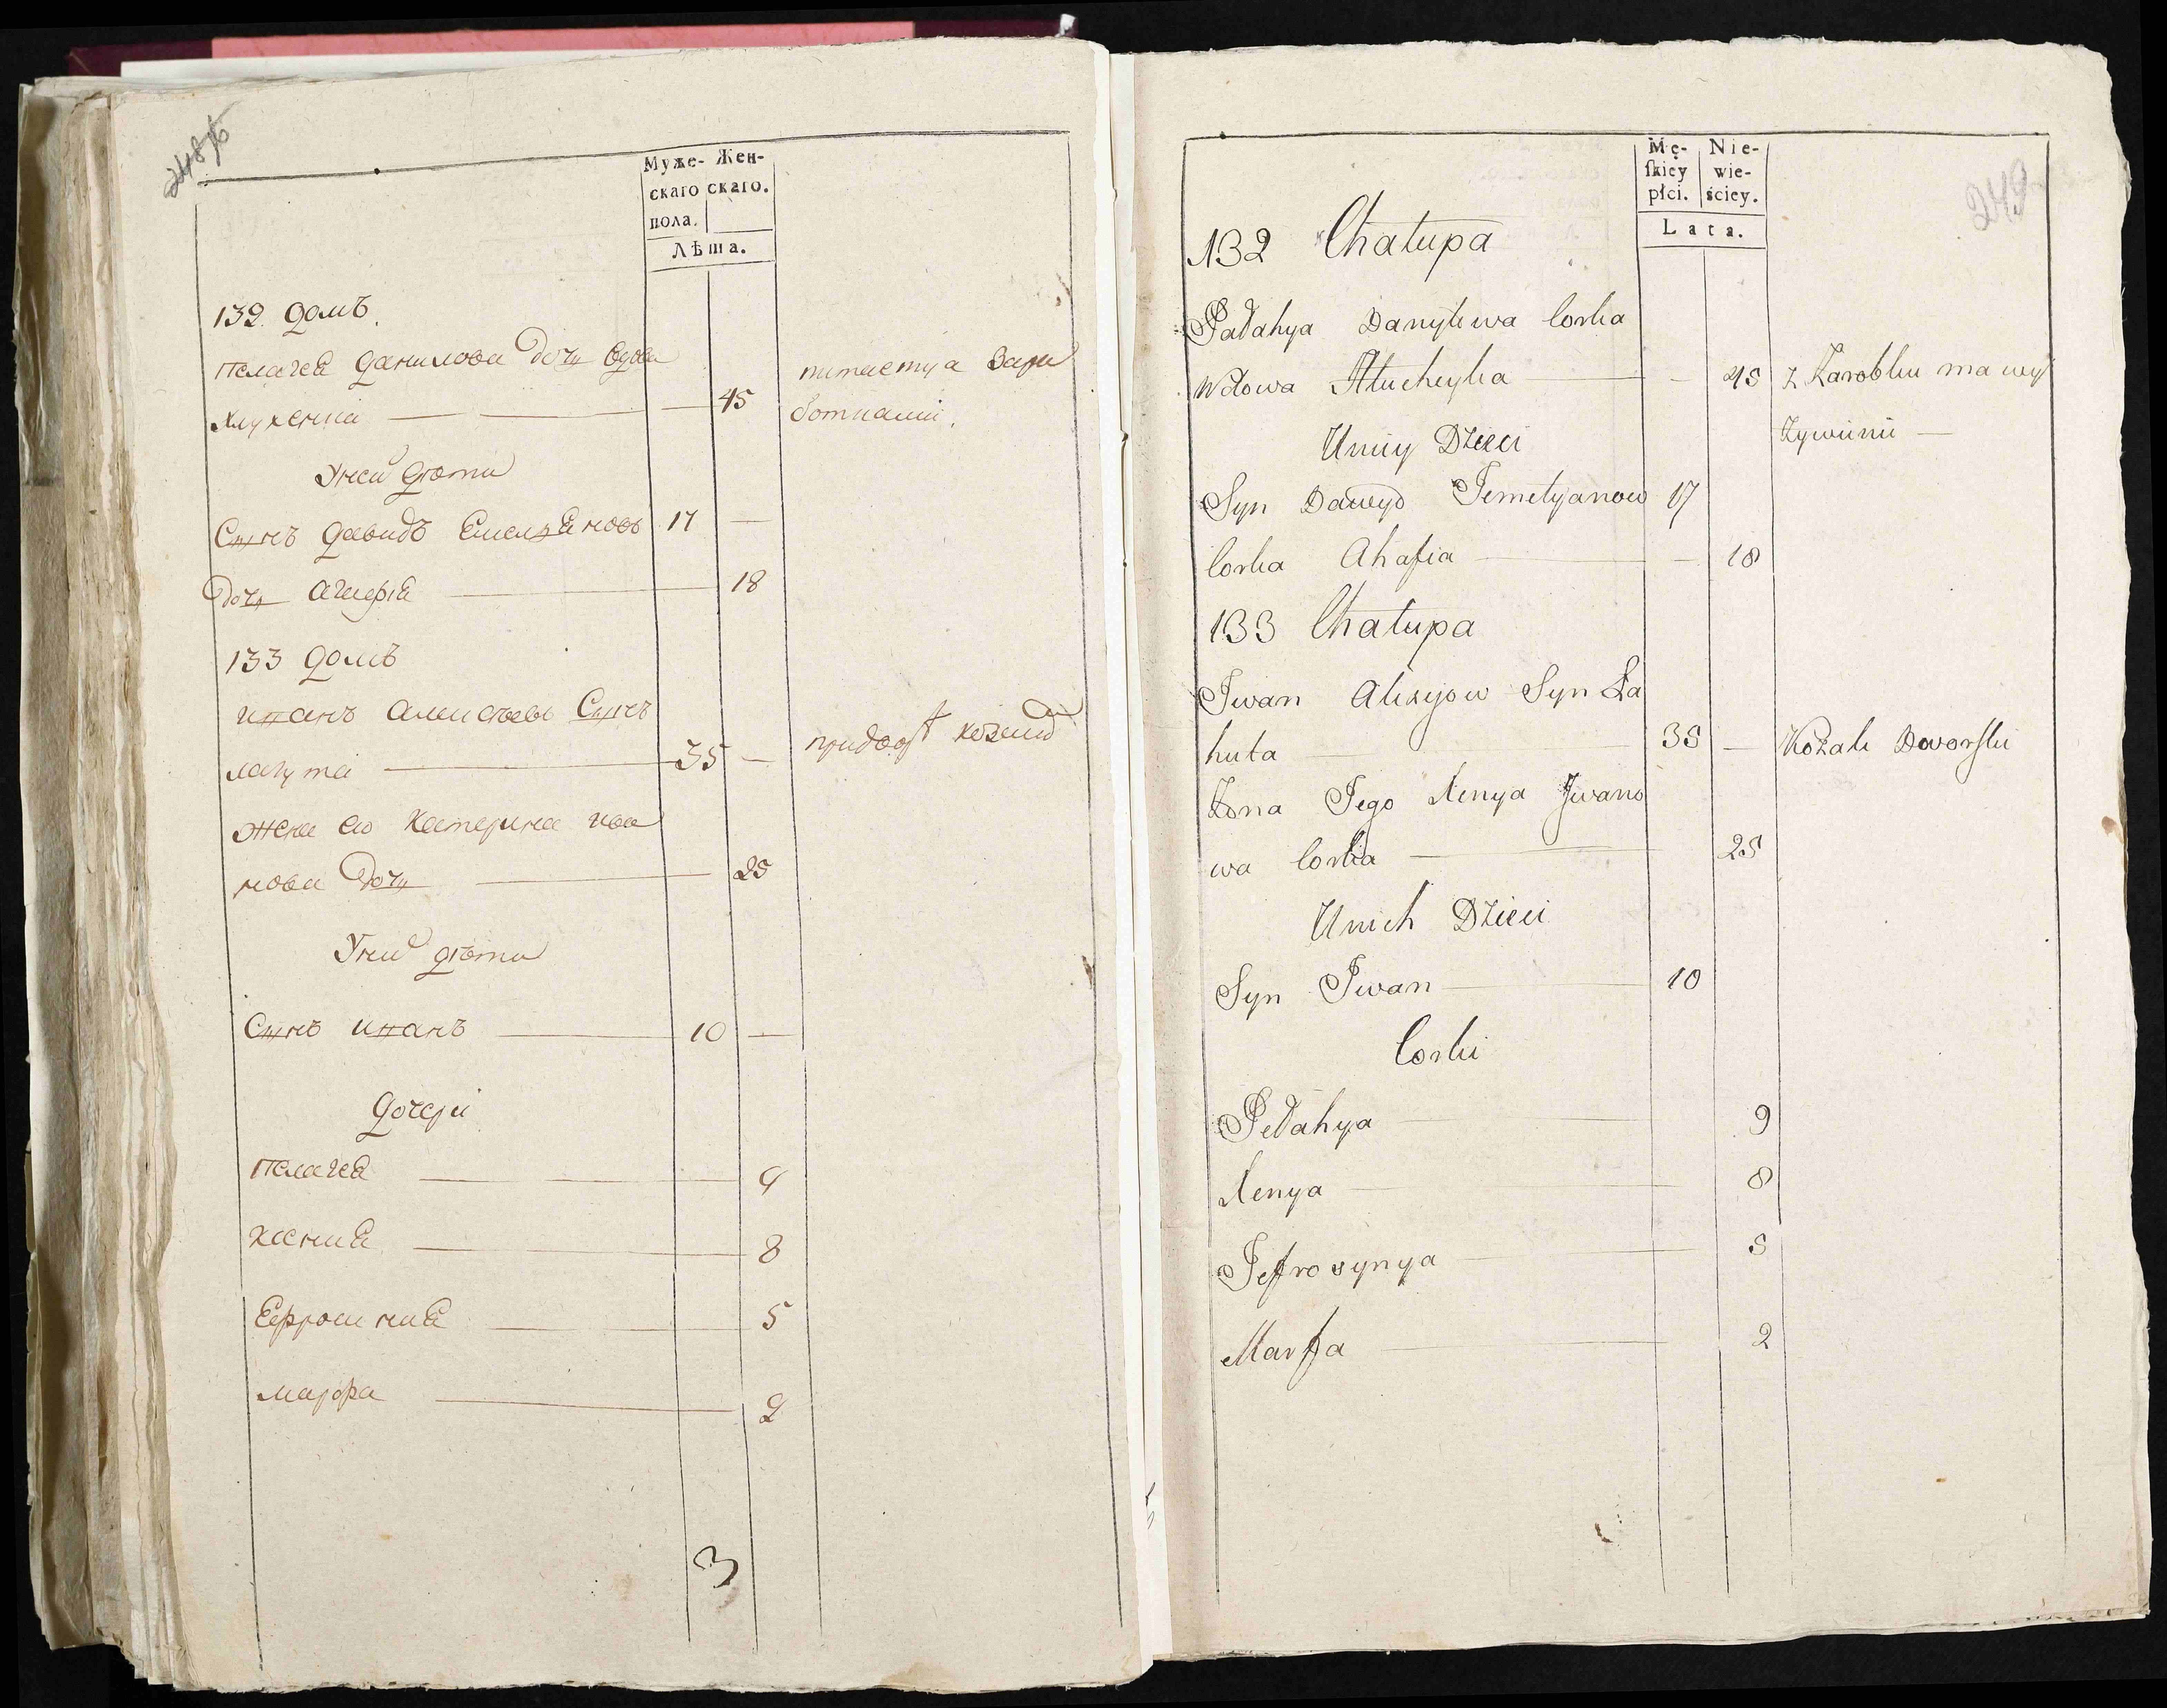 248 об
Муже- Жен-
скаго скаго.
пола.
Лѣта.
132. домъ.
Пелагея данилова дочь вдова
Хлухенка 45
питается зара
ботками.
У ней дѣти
Сынъ давидъ Емельяновъ 17
дочь агафія 18
133 домъ
иванъ алексѣевъ Сынъ
лагута 35
при дворѣ козакъ
жена его Катерина ива
нова дочь 25
У них дѣти
Сынъ иванъ 10
дочери
Пелагея 9
ксения 8
Ефросиния 5
марфа 2
3
249
Mę- Nie-
skiey wie-
płci. ściey.
Lata.
132 Chałupa
Pałahya Danyłowa Corka
Wdowa Hłucheyka 45 z Zarobku ma wy
Uniey Dzieci
żywinie
Syn Dawyd Jemelyanow 17
Corka Ahafia 18
133 Chałupa
Iwan Alexyow Syn La
huta 35 Kozak Dworski
Zona Jego Xenya Iwano
wa Corka 25
Unich Dzieci
Syn Iwan 10
Corki
Pełahya 9
Xenya 8
Jefrosynya 5
Marfa 2